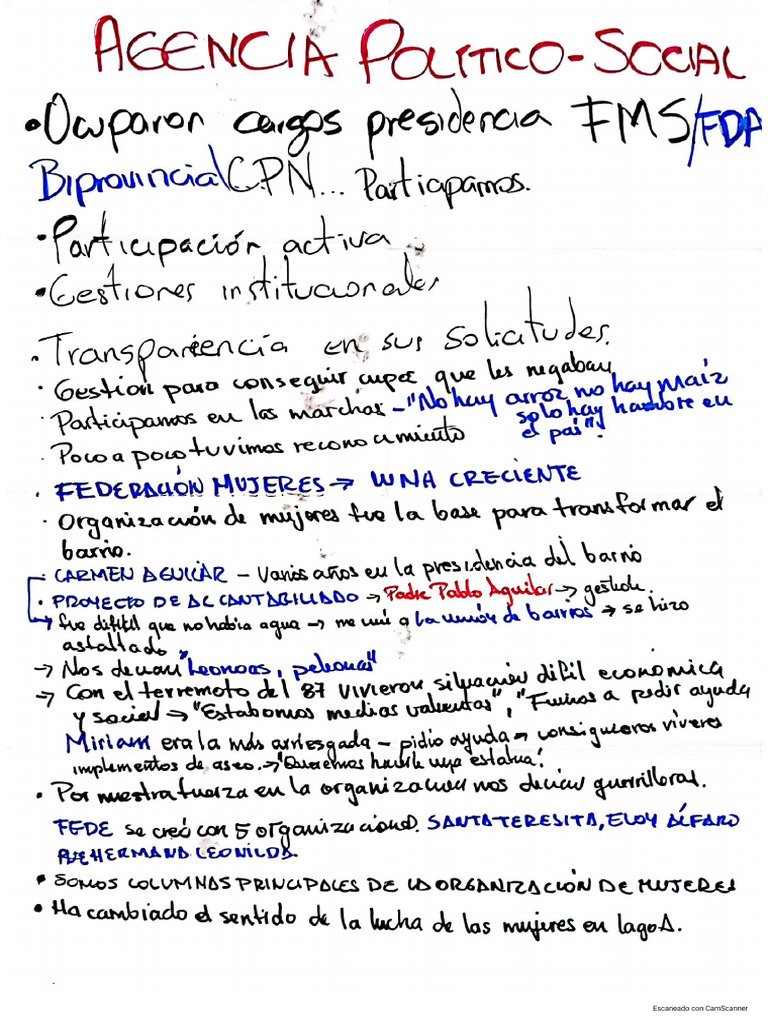 AGENCIA POLÍTICO-SOCIAL
• Ocuparon cargos presidencia FMS/FDA
Biprovincial\CPN... Participamos.
• Participación activa
• Gestiones institucionales
• Transpariencia en sus solicitudes.
• Gestion para conseguir cupos que les negaban
• Participamos en las marchas - "No hay arroz no hay maiz
solo hay hambre en
el pais"!
• Poco a poco tuvimos reconocimiento
• FEDERACIÓN MUJERES → UNA CRECIENTE
• Organización de mujeres fue la base para transformar el
barrio.
• CARMEN AGUILAR - Varios años en la presidencia del barrio
• PROYECTO DE ALCANTARILLADO → Padre Pablo Aguilar → gestión.
→ fue dificil que no habia agua → me uní a la unión de barrios → se hizo
asfaltado.
→ Nos decian "Leonas, peleonas"
→ Con el terremoto del 87 vivieron situación dificil económica
y social → "Estabamos medias valientas", "Fuimos a pedir ayuda
Miriam era la más arriesgada - pidio ayuda → conseguieros víveres
implementos de aseo. → "Queremos hacerle una estatua!
• Por nuestra fuerza en la organización nos decian guerrilleras.
FEDE se creó con 5 organizaciond. SANTA TERESITA, ELOY ALFARO
HERMANA LEONILDA.
• SOMOS COLUMNAS PRINCIPALES DE LA ORGANIZACIÓN DE MUJERES
• Ha cambiado el sentido de la lucha de las mujeres en lago A.
Escaneado con CamScanner